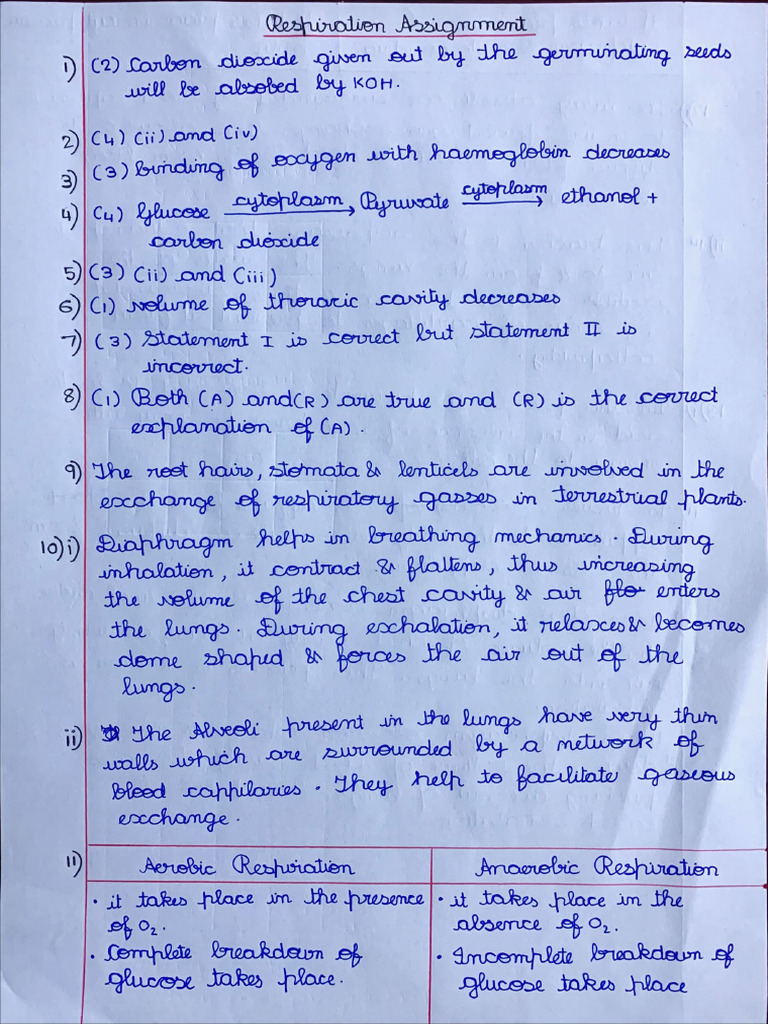 Respiration Assignment
1) (2) Carbon dioxide given out by the germinating seeds
will be absobed by KOH.
2) (4) (ii) and (iv)
3) (3) binding of oxygen with haemoglobin decreases
4) (4) Glucose cytoplasm→ Pyruvate cytoplasm→ ethanol +
carbon dioxide
5) (3) (ii) and (iii)
6) (1) volume of thoracic cavity decreases
7) (3) Statement I is correct but statement II is
incorrect.
8) (1) Both (A) and (R) are true and (R) is the correct
explanation of (A).
9) The root hairs, stomata & lenticels are involved in the
exchange of respiratory gasses in terrestrial plants.
10) i) Diaphragm helps in breathing mechanics. During
inhalation, it contract & flattens, thus increasing
the volume of the chest cavity & air flo enters
the lungs. During exhalation, it relaxes & becomes
dome shaped & forces the air out of the
lungs.
ii) The Alveoli present in the lungs have very thin
walls which are surrounded by a network of
blood cappilaries. They help to facilitate gaseous
exchange.
11) Aerobic Respiration Anaerobic Respiration
• it takes place in the presence
of O₂.
• Complete breakdown of
glucose takes place.
• it takes place in the
absence of O₂.
• Incomplete breakdown of
glucose takes place